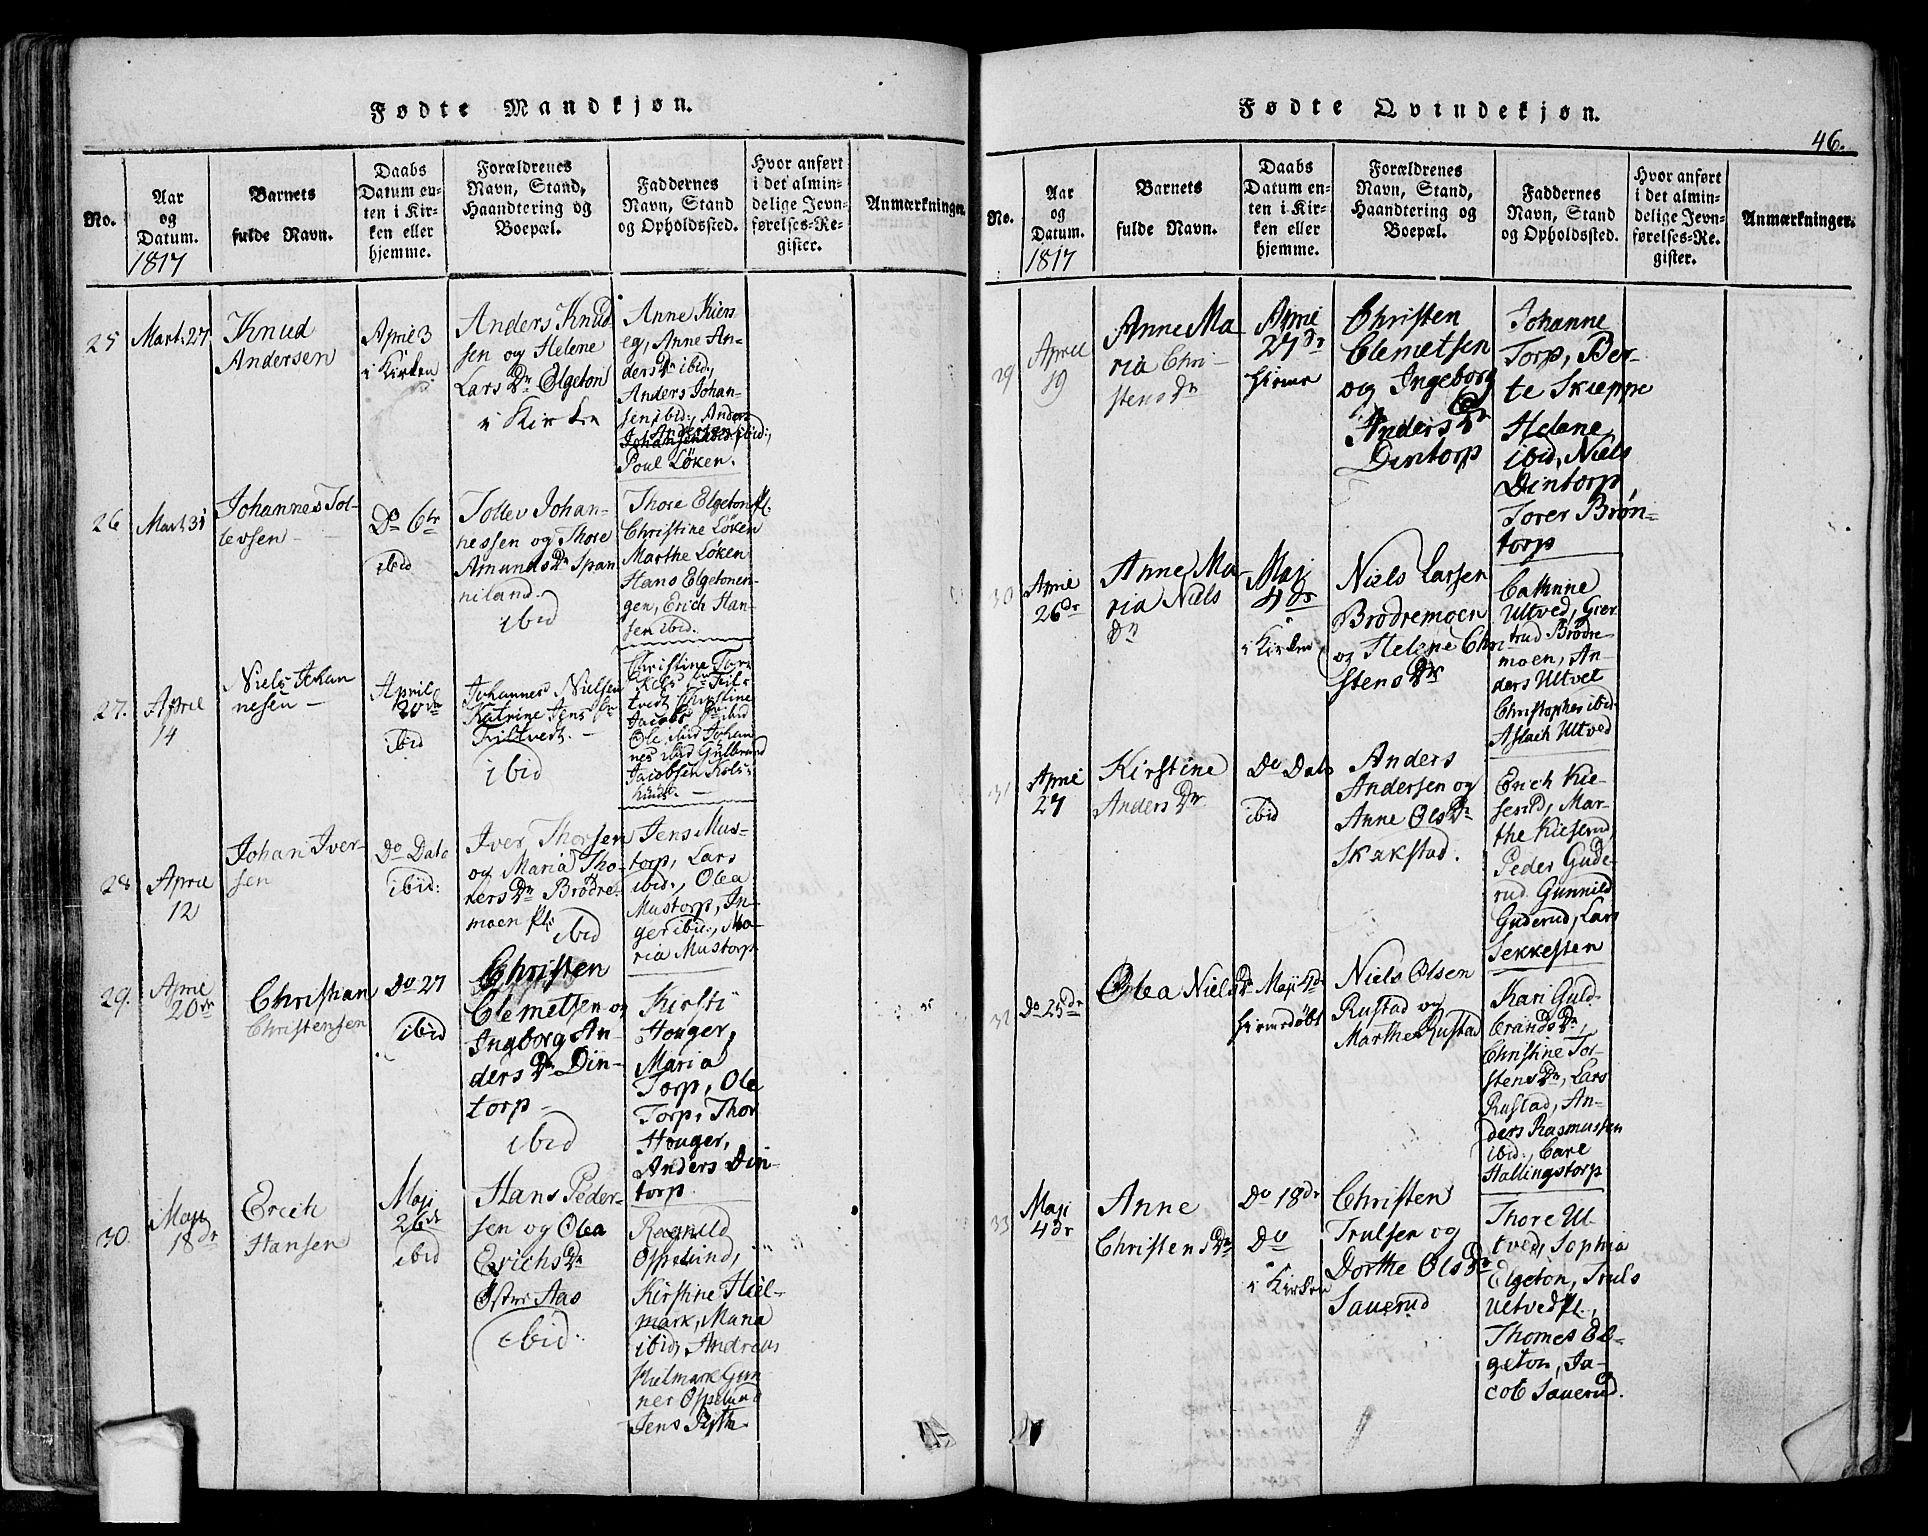 Fødte Mandkjøn.
No.
Aar
og
Datum.
1817
Barnets
fulde Navn.
Daabs
Datum en-
ten i Kir-
ken eller
hjemme.
Forældrenes
Navn, Stand,
Haandtering og
Boepæl.
Faddernes
Navn, Stand
og Opholdssted.
Hvor anført
i det almin-
delige Jevn-
førelses-Re-
gister.
Anmærkninger.
25
Mart. 27
Knud
Andersen
April 3
i Kirken
Anders Knud
sen og Helene
Lars Dr Elgeton
i Kirken
Anne
Anne An-
ders Dr ibid.,
Anders Johan-
sen ibid., Anders
Andersen ibid.,
Poul Løken.
26
Mart. 31
Johannes Tol-
levsen
Do 6te
ibid
Tollev Johan-
nessen og Thore
Amunds Dr Span
niland.
ibid
Thore Elgeton
Christine Løken
Marthe Løken
Hans Elgetonen-
gen, Erich Han-
sen ibid.
27.
April
14
Niels Johan
nesen
April
20de
ibid
Johannes Nielsen
Katrine Jens Dr
ibid
Christine Tor
Jacobs Dr ibid
Ole ibid Johan
nes ibid Gulbrand
Jacobsen
28
April
12
Johan Iver-
sen
Do Dato
ibid:
Iver Thorsen
og Maria Tho-
ders Dr Brødre-
moen pl:
ibid
Jens Mus-
torp, Lars
ibid:, Olea
Mustorp, In-
ger ibid:, Ma-
ria Mustorp
29.
April
20de
Christian
Christensen
Do 27
ibid
Christen
Clemetsen og
Ingborg An-
ders Dr Din-
torp
ibid
Kirsti
Houger,
Maria
Torp, Ole
Torp, Thor
Houger,
Anders Din-
torp
30.
Maji
18de
Erich
Hansen
Maji
26de
ibid
Hans Peder-
sen og Olea
Erichs Dr
Øster Aas
ibid:
Ragnild
Ospelund,
Kirstine Hiel-
mark, Maria
ibid, Andreas
Hielmark Gun
ner Ospelund
Jens
Fødte Qvindekjøn.
46.
No.
Aar
og
Datum.
1817
Barnets
fulde Navn.
Daabs
Datum en-
ten i Kir-
ken eller
hjemme.
Forældrenes
Navn, Stand,
Haandtering og
Boepæl.
Faddernes
Navn, Stand
og Opholdssted.
Hvor anført
i det almin-
delige Jevn-
førelses-Re-
gister.
Anmærkninger.
29
April
19
Anne Ma
ria Chri-
stens Dr
April
27de
hieme
Christen
Clemetsen
og Ingeborg
Anders Dr
Dintorp
Johanne
Torp, Ber-
te Skieppe
Helene
ibid, Niels
Dintorp,
Torer Brøn-
torp
30
April
26de
Anne Ma
ria Niels
Dr
Maj
4de
i Kirken
Niels Larsen
Brødremoen
og Helene Chri
stens Dr
Cathrine
Ultved, Gier
trud Brødre-
moen, An-
ders Ultvet
Christopher ibid.
Aslach Ultved
31
April
27
Kirstine
Anders Dr
Do Dato
ibid
Anders
Andersen og
Anne Ols Dr
Skakstad.
Erich Kie-
serud, Mar-
the Kieserud,
Peder Gude
rud. Gunnild
Guderud, Lars
Sekkesten
32
Do 25de
Olea Niels Dr
Maji 4de
hiemedøbt
Niels Olsen
Rustad og
Marthe Rustad
Kari Guld-
brands Dr,
Christine Tor-
stens Dr, Lars
Rustad, An-
ders Rasmussen
ibid:, Carl
Hallingstorp
33
Maji
4de
Anne
Christens Dr
Do 18de
Do
i Kirken
Christen
Trulsen og
Dorthe Ols Dr
Sauerud
Thore Ul-
tved, Sophia
Elgeton, Truls
Ultved pl.,
Thomes El-
geton, Ja-
cob Sauerud.